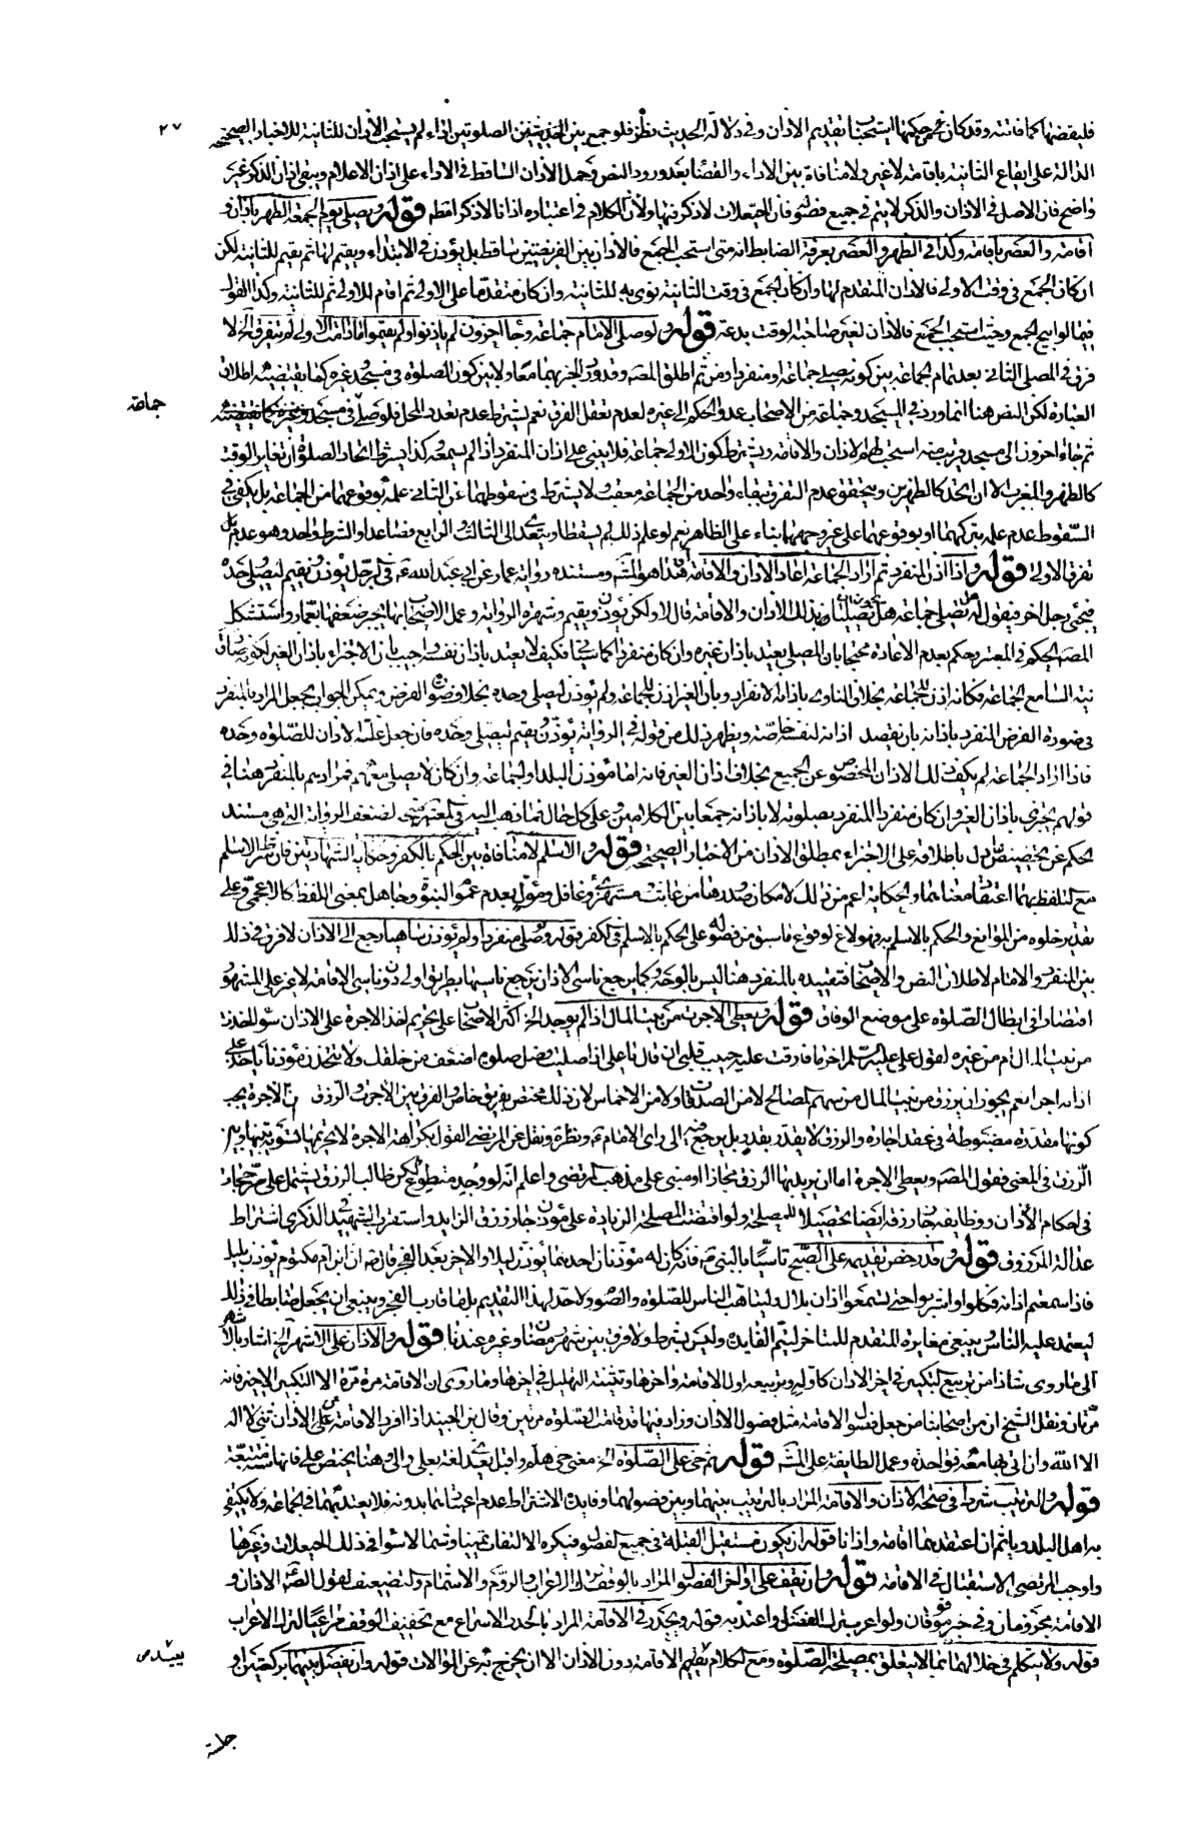 ٢٧
فليقضها كما فاتته وقد كان من حكمها استحباب تقديم الاذان وفي دلالة الحديث نظر فلو جمع بين الصلوتين اداء لم يستحب الاذان للثانية للاخبار الصحيحة
الدالة على ايقاع الثانية باقامة لا غير ولا منافاة بين الاداء والقضاء بعد ورود النص وحمل الاذان الساقط في الاداء على اذان الاعلام ويبقى اذان الذكر غير
واضح فان الاصل في الاذان والذكر لا يتم في جميع فصوله فان الحيعلات لا ذكر فيها ولان الكلام في اعتباره اذانا لا ذكرا قوله ويصلي يوم الجمعة الظهر باذان و
اقامة والعصر باقامة وكذا في الظهر والعصر بعرفة الضابط انه متى استحب الجمع فالاذان بين الفريضتين ساقط بل يؤذن في الابتداء ويقيم لها ثم يقيم للثانية لكن
ان كان الجمع في وقت الاولى فالاذان المتقدم لها وان كان الجمع في وقت الثانية نوى به للثانية وان كان متقدما على الاولى ثم اقام للاولى ثم للثانية وكذا القول
فيما لو ابيح الجمع وحيث استحب الجمع فالاذان لغير صاحبة الوقت بدعة قوله ولو صلى الامام جماعة وجاء اخرون لم يؤذنوا ولم يقيموا ما دامت الاولى لم تتفرق الخ لا
فرق في المصلي الثاني بعد تمام الجماعة بين كونه يصلي جماعة او منفردا ومن ثم اطلق المصه ولا بين كون الصلوة في مسجد وغيره كما يقتضيه اطلاق
العبارة لكن النص هنا انما ورد في المسجد وجماعة من الاصحاب عدوا الحكم الى غيره لعدم تعقل الفرق نعم يشترط عدم تعدد المحل فلو صلى في مسجد جماعة
ثم جاء اخرون الى مسجد قريب منه استحب لهم الاذان والاقامة ويشترط كون الاولى جماعة فلا ينبني على اذان المنفرد اذا لم يسمعه وكذا يشترط اتحاد الصلوة او تغاير الوقت
كالظهر والمغرب الا ان اتحد كالظهرين ويتحقق عدم التفرق ببقاء واحد من الجماعة معقبا ولا يشترط في سقوطهما عن الثاني علمه بوقوعهما من الجماعة بل يكفي في
السقوط عدم علمه بتركهما او بوقوعهما على غير وجههما بناء على الظاهر نعم لو علم ذلك لم يسقط او يتعدى الى الثالث والرابع فصاعدا والشرط واحد وهو عدم
تفرق الاولى قوله واذا اذن المنفرد ثم اراد الجماعة اعاد الاذان والاقامة هذا هو المشهور ومستنده رواية عمار عن ابي عبد الله ع في الرجل يؤذن ويقيم ليصلي وحده
فيجئ رجل اخر فيقول له نصلي جماعة هل يجوز ان نصليا بذلك الاذان والاقامة قال لا ولكن يؤذن ويقيم وشهرة الرواية وعمل الاصحاب بها يجبر ضعفها بعمار واستشكل
المصه الحكم في المعتبر وحكم بعدم الاعادة محتجا بان المصلي يعتد باذان غيره وان كان منفردا كما سيجئ فكيف لا يعتد باذان نفسه واجيب بان الاجتزاء باذان الغير لكونه صادف
نية السامع الجماعة فكانه اذن للجماعة بخلاف الناوي باذانه الانفراد وبان الغير اذن للجماعة ولم يؤذن ليصلي وحده بخلاف صورة الفرض ويمكن الجواب بجعل المراد بالمنفرد
في صورة الفرض المنفرد باذانه بان يقصد اذانه لنفسه خاصة ويظهر ذلك من قوله في الرواية يؤذن ويقيم ليصلي وحده فان جعل علة الاذان للصلوة وحده
فاذا اراد الجماعة لم يكف ذلك الاذان المخصوص عن الجميع بخلاف اذان الغير فانه اما مؤذن البلد او لجماعة وان كان لا يصلي معهم فمرادهم بالمنفرد هنا في
قولهم يجتزي باذان الغير وان كان منفردا المنفرد بصلوته لا باذانه جمعا بين الكلامين وعلى كل حال فما ذهب اليه في المعتبر متجه لضعف الرواية التي هي مستند
الحكم عن تخصيص ما دل باطلاقه على الاجتزاء بمطلق الاذان من الاخبار الصحيحة قوله والاسلام لا منافاة بين الحكم بالكفر وحكاية الشهادتين فان الاسلام
مع التلفظ بهما اعتقاد معناهما والحكاية اعم من ذلك لامكان صدورها من عابث ومستهزئ وغافل ومؤول بعدم عموم النبوة وجاهل بمعنى اللفظ كالاعجمي وعلى
تقدير خلوه من الموانع والحكم بالاسلام به فهو لاغ لوقوع ما سبق من فصوله على الحكم بالاسلام في الكفر قوله ولو صلى منفردا ولم يؤذن ساهيا رجع الى الاذان لا فرق في ذلك
بين المنفرد والامام لاطلاق النص والاصحاب فتقييده بالمنفرد هنا ليس بالوجه وكما يرجع ناسي الاذان يرجع ناسيهما بطريق اولى دون ناسي الاقامة لا غير على المشهور
اقتصارا في ابطال الصلوة على موضع الوفاق قوله ويعطى الاجرة من بيت المال اذا لم يوجد الخ اكثر الاصحاب على تحريم اخذ الاجرة على الاذان سواء اخذت
من بيت المال ام من غيره لقول علي عليه السلم اخر ما فارقت عليه حبيب قلبي ان قال يا علي اذا صليت فصل صلوة اضعف من خلفك ولا تتخذن مؤذنا ياخذ على
اذانه اجرا نعم يجوز ان يرزق من بيت المال من سهم المصالح لا من الصدقات ولا من الاخماس لان ذلك مختص بفريق خاص والفرق بين الاجرة والرزق ان الاجرة يجب
كونها مقدرة مضبوطة في عقد اجارة والرزق لا يقدر بقدر بل يرجع فيه الى راي الامام ع ونقل عن المرتضى القول بكراهة الاجرة لا تحريمها بتسوية بينها وبين
الرزق في المعنى فقول المصه ويعطى الاجرة اما ان يريد بها الرزق مجازا او مبني على مذهب المرتضى واعلم انه لو وجد متطوع لكن طالب الرزق يشتمل على مرجحات
في احكام الاذان ووظايفه جاز رزقه ايضا تحصيلا للمصلحة ولو اقتضت المصلحة الزيادة على مؤذن جاز رزق الزايد واستقرب الشهيد في الذكرى اشتراط
عدالة المرزوق قوله وقد رخص تقديمه على الصبح تاسيا بالنبي ص فانه كان له مؤذنان احدهما يؤذن ليلا والاخر بعد الفجر فان ابن ام مكتوم يؤذن بليل
فاذا سمعتم اذانه فكلوا واشربوا حتى تسمعوا اذان بلال وليتاهب الناس للصلوة والصوم ولا حد لهذا التقديم بل ما قارب الفجر وينبغي ان يجعل ضابطا في ذلك
ليعتمد عليه الناس وينبغي مغايرة المتقدم للمتاخر ليتم الفايدة وليس بشرط ولا فرق بين شهر رمضان وغيره عندنا قوله والاذان على الاشهر الخ اشار بالاشهر
الى ما روى شاذا من تربيع التكبير في اخر الاذان كاوله وتربيعه اول الاقامة واخرها وتثنية التهليل في اخرها وما روي ان الاقامة مرة مرة الا التكبير الاخير فانه
مرتان ونقل الشيخ ان من اصحابنا من جعل فصول الاقامة مثل فصول الاذان وزاد فيها قد قامت الصلوة مرتين وقال ابن الجنيد اذا افرد الاقامة عن الاذان ثنى لا اله
الا الله وان اتى بها معه فواحدة وعمل الطايفة على المشه قوله ثم حي على الصلوة الخ معنى حي هلم واقبل ويعدى لغة بعلى والى وهنا يختص بعلى فانها سنة متبعة
قوله والترتيب شرط في صحة الاذان والاقامة المراد بالترتيب بينهما وبين فصولهما وفايدة الاشتراط عدم اعتبارهما بدونه فلا يعتد بهما في الجماعة ولا يكتفي
به اهل البلد وياثم ان اعتقدهما اقامة واذانا قوله ان يكون مستقبل القبلة في جميع الفصول فيكره الالتفات يمينا وشمالا سواء في ذلك الحيعلات وغيرها
واوجب المرتضى الاستقبال في الاقامة قوله وان يقف على اواخر الفصول المراد بالوقف ترك الاعراب والروم والاشمام والتضعيف لقول الصه الاذان و
الاقامة مجزومان وفي خبر موقوفان ولو اعرب ترك الفضل واعتد به قوله ويحدر في الاقامة المراد بالحدر الاسراع مع تخفيف الوقف مراعيا لترك الاعراب
قوله ولا يتكلم في خلالهما بما لا يتعلق بمصلحة الصلوة ومع الكلام يعيد الاقامة دون الاذان الا ان يخرج به عن الموالات قوله وان يفصل بينهما بركعتين او
جلسة